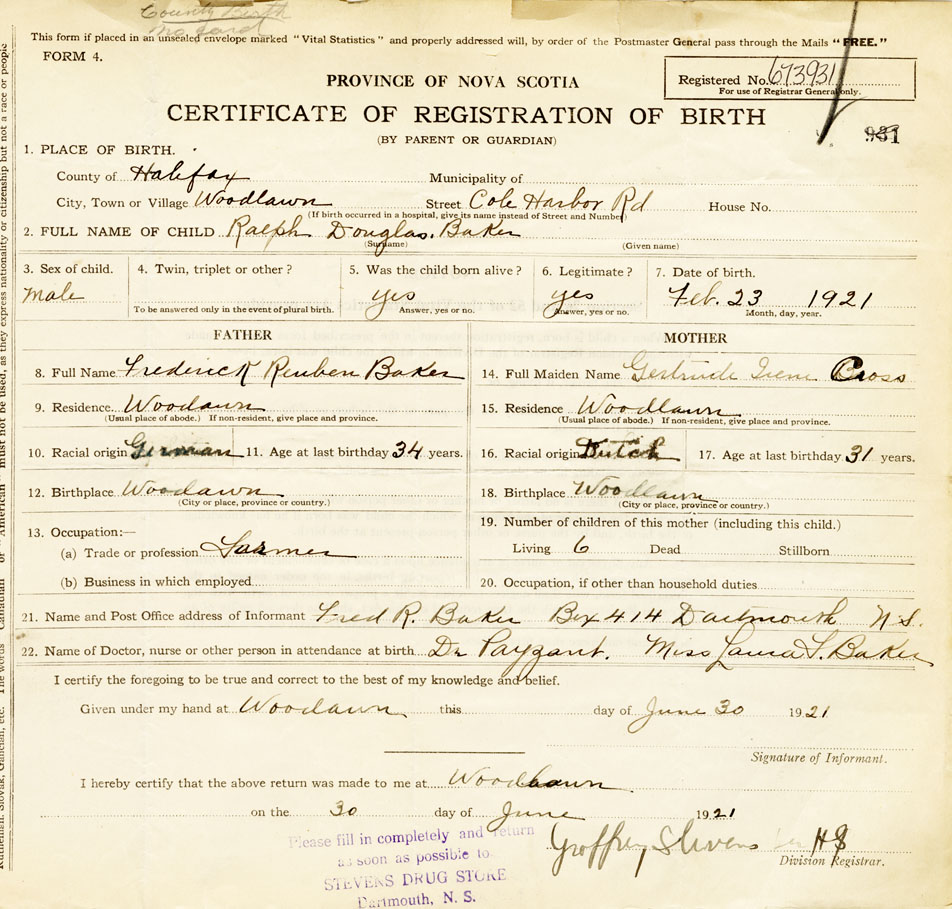 County Birth
This form if placed in an unsealed envelope marked "Vital Statistics" and properly addressed will, by order of the Postmaster General pass through the Mails "FREE."
FORM 4.
PROVINCE OF NOVA SCOTIA
Registered No. 673931
For use of Registrar General only.
CERTIFICATE OF REGISTRATION OF BIRTH
931
(BY PARENT OR GUARDIAN)
1. PLACE OF BIRTH.
County of Halifax Municipality of
City, Town or Village Woodlawn Street Cole Harbor Rd House No.
(If birth occurred in a hospital, give its name instead of Street and Number)
2. FULL NAME OF CHILD Ralph Douglas. Baker
(Surname) (Given name)
3. Sex of child. 4. Twin, triplet or other? 5. Was the child born alive? 6. Legitimate? 7. Date of birth.
Male yes yes Feb. 23 1921
To be answered only in the event of plural birth. Answer, yes or no. Answer, yes or no. Month, day, year.
FATHER
8. Full Name Frederick Reuben Baker
9. Residence Woodlawn
(Usual place of abode.) If non-resident, give place and province.
10. Racial origin German 11. Age at last birthday 34 years.
12. Birthplace Woodlawn
(City or place, province or country.)
13. Occupation:—
(a) Trade or profession Farmer
(b) Business in which employed
MOTHER
14. Full Maiden Name Gertrude Irene Cross
15. Residence Woodlawn
(Usual place of abode.) If non-resident, give place and province.
16. Racial origin Dutch 17. Age at last birthday 31 years.
18. Birthplace Woodlawn
(City or place, province or country.)
19. Number of children of this mother (including this child.)
Living 6 Dead Stillborn
20. Occupation, if other than household duties
21. Name and Post Office address of Informant Fred R. Baker Box 414 Dartmouth N.S.
22. Name of Doctor, nurse or other person in attendance at birth Dr Payzant. Miss Laura S. Baker
I certify the foregoing to be true and correct to the best of my knowledge and belief.
Given under my hand at Woodlawn this day of June 30 1921
Signature of Informant.
I hereby certify that the above return was made to me at Woodlawn
on the 30 day of June 1921
Geoffrey Stevens per HS
Division Registrar.
Please fill in completely and return
as soon as possible to
STEVENS DRUG STORE
Dartmouth, N. S.
must not be used, as they express nationality or citizenship but not a race or people
Ruthenian, Slovak, Galician, etc. The words "Canadian" or "American"